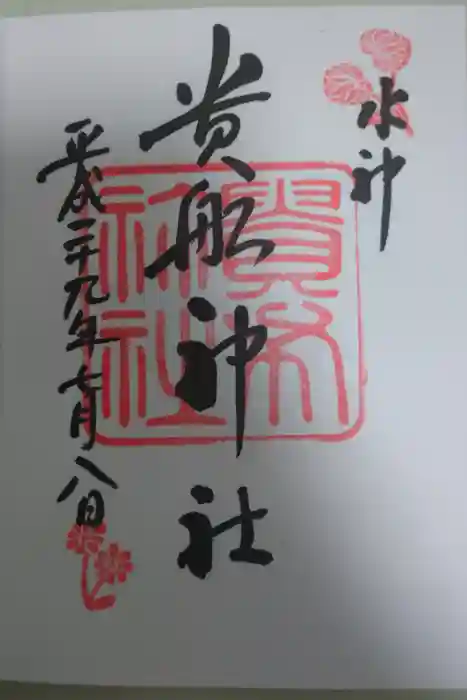 水神
貴船神社
平成二十九年七月八日
貴布
祢社